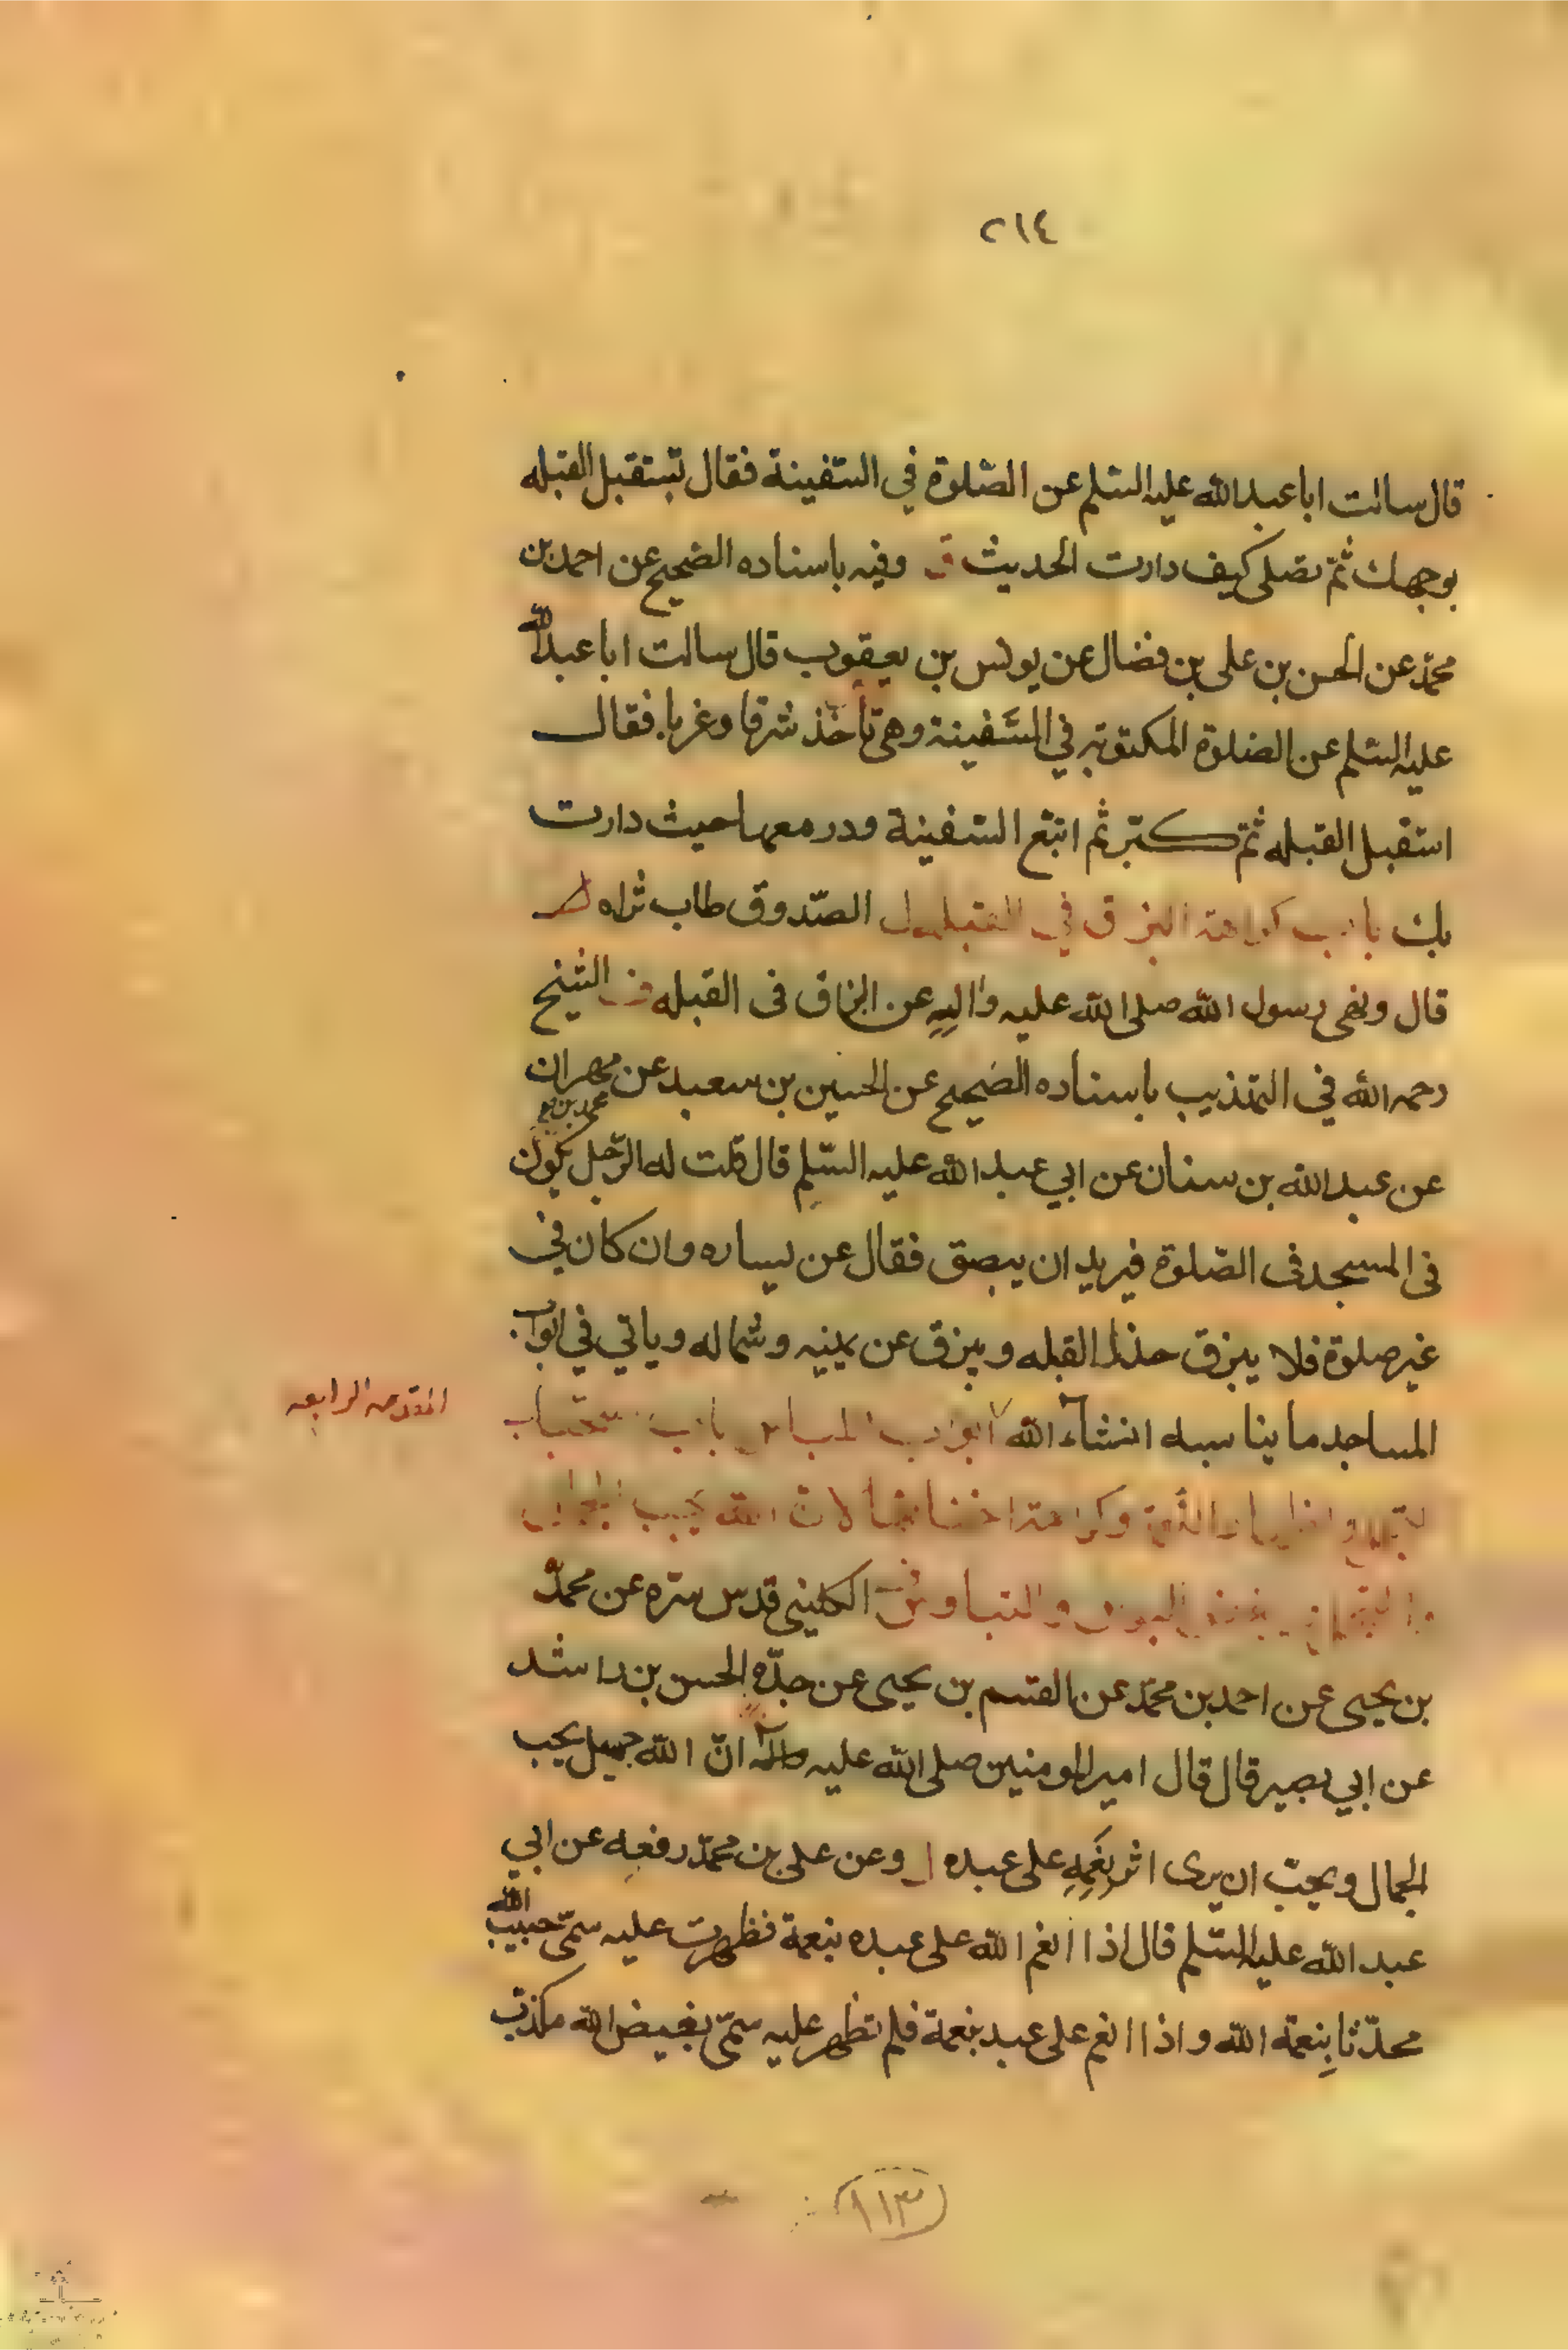 ٢١٤
قال سالت ابا عبدالله عليه السّلم عن الصّلوة في السّفينة فقال تستقبل القبله
بوجهك ثمّ تصلى كيف دارت الحديث ق وفيه باسناده الصّحيح عن احمد بن
محمّد عن الحسن بن على بن فضال عن يونس بن يعقوب قال سالت ابا عبدالله
عليه السّلم عن الصّلوة المكتوبه في السَّفينة وهى تأخذ شرقا وغربا فقال
استقبل القبله ثمّ كبّر ثم اتبع السّفينة ودر معها حيث دارت
بك باب كراهة البزاق في القبله الصّدوق طاب ثراه
قال ونهى رسول الله صلى الله عليه واله عن البزاق فى القبله الشيخ
رحمه الله في التهذيب باسناده الصّحيح عن الحسين بن سعيد عن مهران
محمد بن
عن عبدالله بن سنان عن ابي عبدالله عليه السّلم قال قلت له الرّجل يكون
فى المسجد فى الصّلوة فيريد ان يبصق فقال عن يساره وان كان في
غير صلوة فلا يبزق حذاء القبله ويبزق عن يمينه وشماله وياتي في ابواب
المساجد ما يناسبه انشاء الله ابواب الملابس باب استحباب
المقدمه الرابعه
التجمل واظهار النعمة وكراهة لان الله يحب الجمال
والتجمل ويبغض البؤس والتباوس الكلينى قدس سّره عن محمّد
بن يحيى عن احمد بن محمّد عن القسم بن يحيى عن جدّه الحسن بن راشد
عن ابي بصير قال قال امير المومنين صلى الله عليه انّ الله جميل يحب
الجمال ويحبّ ان يرى اثر نِعَمِهِ على عبده وعن على بن محمّد رفعه عن ابي
عبد الله عليه السّلم قال اذا انعم الله على عبده بنعمة فظهرت عليه سمّى حبيب الله
محدّثا بِنعمة الله واذا انعم على عبد بنعمة فلم تظهر عليه سمّى بغيض الله مكذب
١١٣